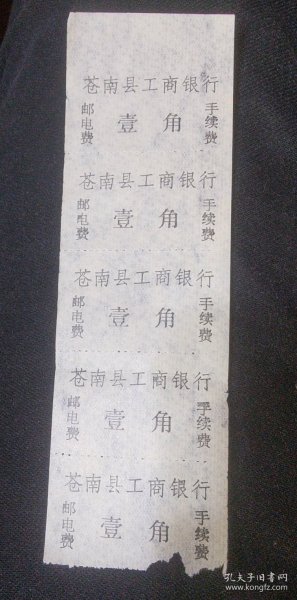 苍南县工商银行
邮电费 壹角 手续费
苍南县工商银行
邮电费 壹角 手续费
苍南县工商银行
邮电费 壹角 手续费
苍南县工商银行
邮电费 壹角 手续费
苍南县工商银行
邮电费 壹角 手续费
孔夫子旧书网
www.kongfz.com